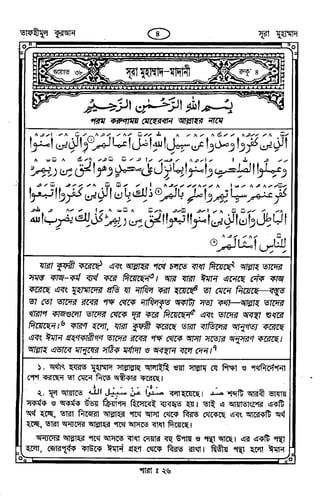 তাফহীমুল কুরআন ৪ সূরা মুহাম্মাদ
আয়াত ৩৮ সূরা মুহাম্মাদ-মাদানী রুকূ' ৪
بِسْمِ اللّٰهِ الرَّحْمٰنِ الرَّحِيْمِ
পরম করুণাময় মেহেরবান আল্লাহর নামে
اَلَّذِيْنَ كَفَرُوْا وَصَدُّوْا عَنْ سَبِيْلِ اللّٰهِ اَضَلَّ اَعْمَالَهُمْ ① وَالَّذِيْنَ اٰمَنُوْا
وَعَمِلُوا الصّٰلِحٰتِ وَاٰمَنُوْا بِمَا نُزِّلَ عَلٰى مُحَمَّدٍ وَّهُوَ الْحَقُّ مِنْ رَّبِّهِمْ ۙ
كَفَّرَ عَنْهُمْ سَيِّاٰتِهِمْ وَاَصْلَحَ بَالَهُمْ ② ذٰلِكَ بِاَنَّ الَّذِيْنَ كَفَرُوا اتَّبَعُوا
الْبَاطِلَ وَاَنَّ الَّذِيْنَ اٰمَنُوا اتَّبَعُوا الْحَقَّ مِنْ رَّبِّهِمْ ۚ كَذٰلِكَ يَضْرِبُ اللّٰهُ
لِلنَّاسِ اَمْثَالَهُمْ ③
যারা কুফরী করেছে১ এবং আল্লাহর পথে চলতে বাধা দিয়েছে২ আল্লাহ তাদের
সমস্ত কাজ-কর্ম ব্যর্থ করে দিয়েছেন৩। আর যারা ঈমান এনেছে নেক কাজ
করেছে এবং মুহাম্মাদের প্রতি যা নাযিল করা হয়েছে৪ তা মেনে নিয়েছে—বস্তুত
তা তো তাদের রবের পক্ষ থেকে নাযিলকৃত অকাট্য সত্য কথা—আল্লাহ তাদের
খারাপ কাজগুলো তাদের থেকে দূর করে দিয়েছেন৫ এবং তাদের অবস্থা শুধরে
দিয়েছেন।৬ কারণ হলো, যারা কুফরী করেছে তারা বাতিলের আনুগত্য করেছে
এবং ঈমান গ্রহণকারীগণ তাদের রবের পক্ষ থেকে আসা সত্যের অনুসরণ করেছে।
আল্লাহ এভাবে মানুষের সঠিক মর্যাদা ও অবস্থান বলে দেন।৭
১. অর্থাৎ হযরত মুহাম্মাদ সাল্লাল্লাহু আলাইহি ওয়া সাল্লাম যে শিক্ষা ও পথনির্দেশনা
পেশ করছেন তা মেনে নিতে অস্বীকার করেছে।
২. মূল আয়াতে صَدُّوْا عَنْ سَبِيْلِ اللّٰهِ বলা হয়েছে। صد শব্দটি আরবী ভাষায়
সকর্মক ও অকর্মক উভয় ক্রিয়াপদ হিসেবেই ব্যবহৃত হয়। তাই এ আয়াতাংশের একটি
অর্থ হচ্ছে, তারা নিজেরা আল্লাহর পথে আসা থেকে বিরত থেকেছে এবং আরেকটি অর্থ
হচ্ছে, তারা অন্যদের আল্লাহর পথে আসতে বাধা দিয়েছে।
অন্যদের আল্লাহর পথে আসতে বাধা দেয়ার বহু উপায় ও পন্থা আছে। এর একটি পন্থা
হলো, জোরপূর্বক কাউকে ঈমান গ্রহণ থেকে বিরত রাখা। দ্বিতীয় পন্থা হলো ঈমান
পারা ঃ ২৬